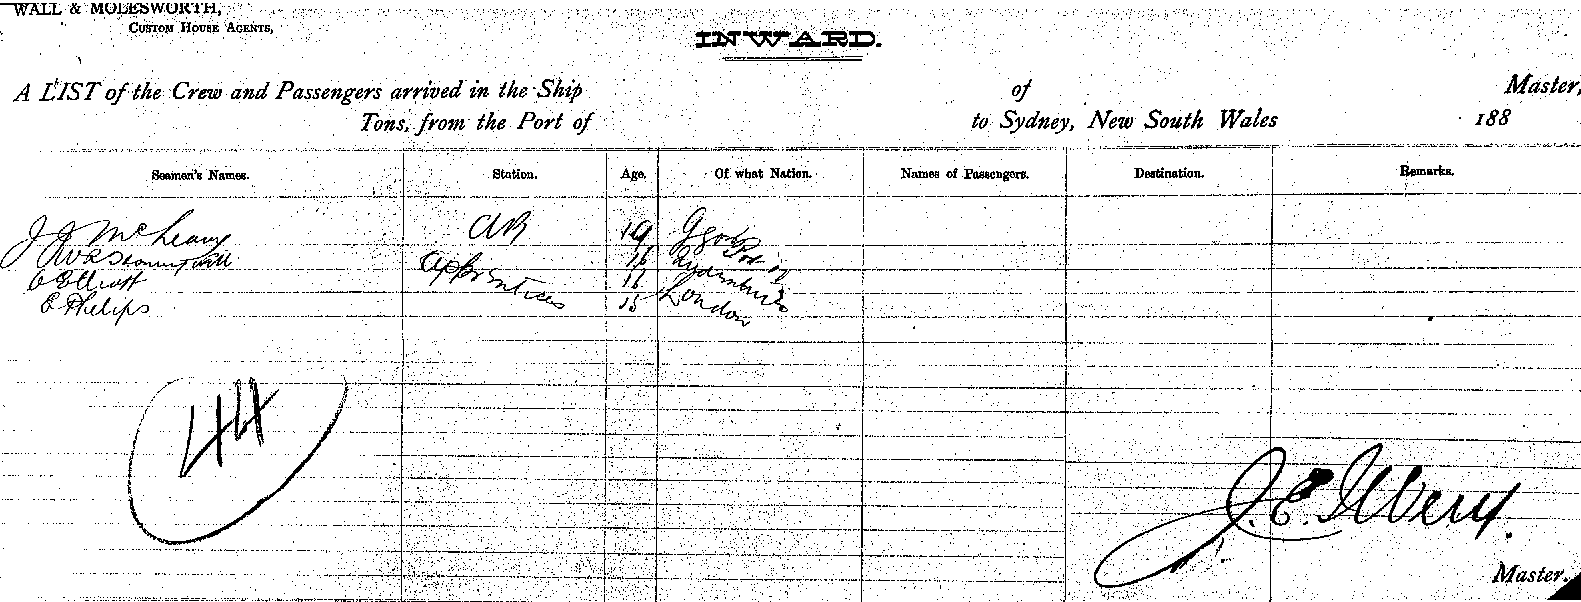 WALL & MOLESWORTH,
CUSTOM HOUSE AGENTS,
INWARD.
A LIST of the Crew and Passengers arrived in the Ship of Master,
Tons, from the Port of to Sydney, New South Wales 188
Seamen's Names. Station. Age. Of what Nation. Names of Passengers. Destination. Remarks.
J J McLeary AB 19
16
Elliott Apprentices 16
E Phelips 15 London
44
J. E.
Master.